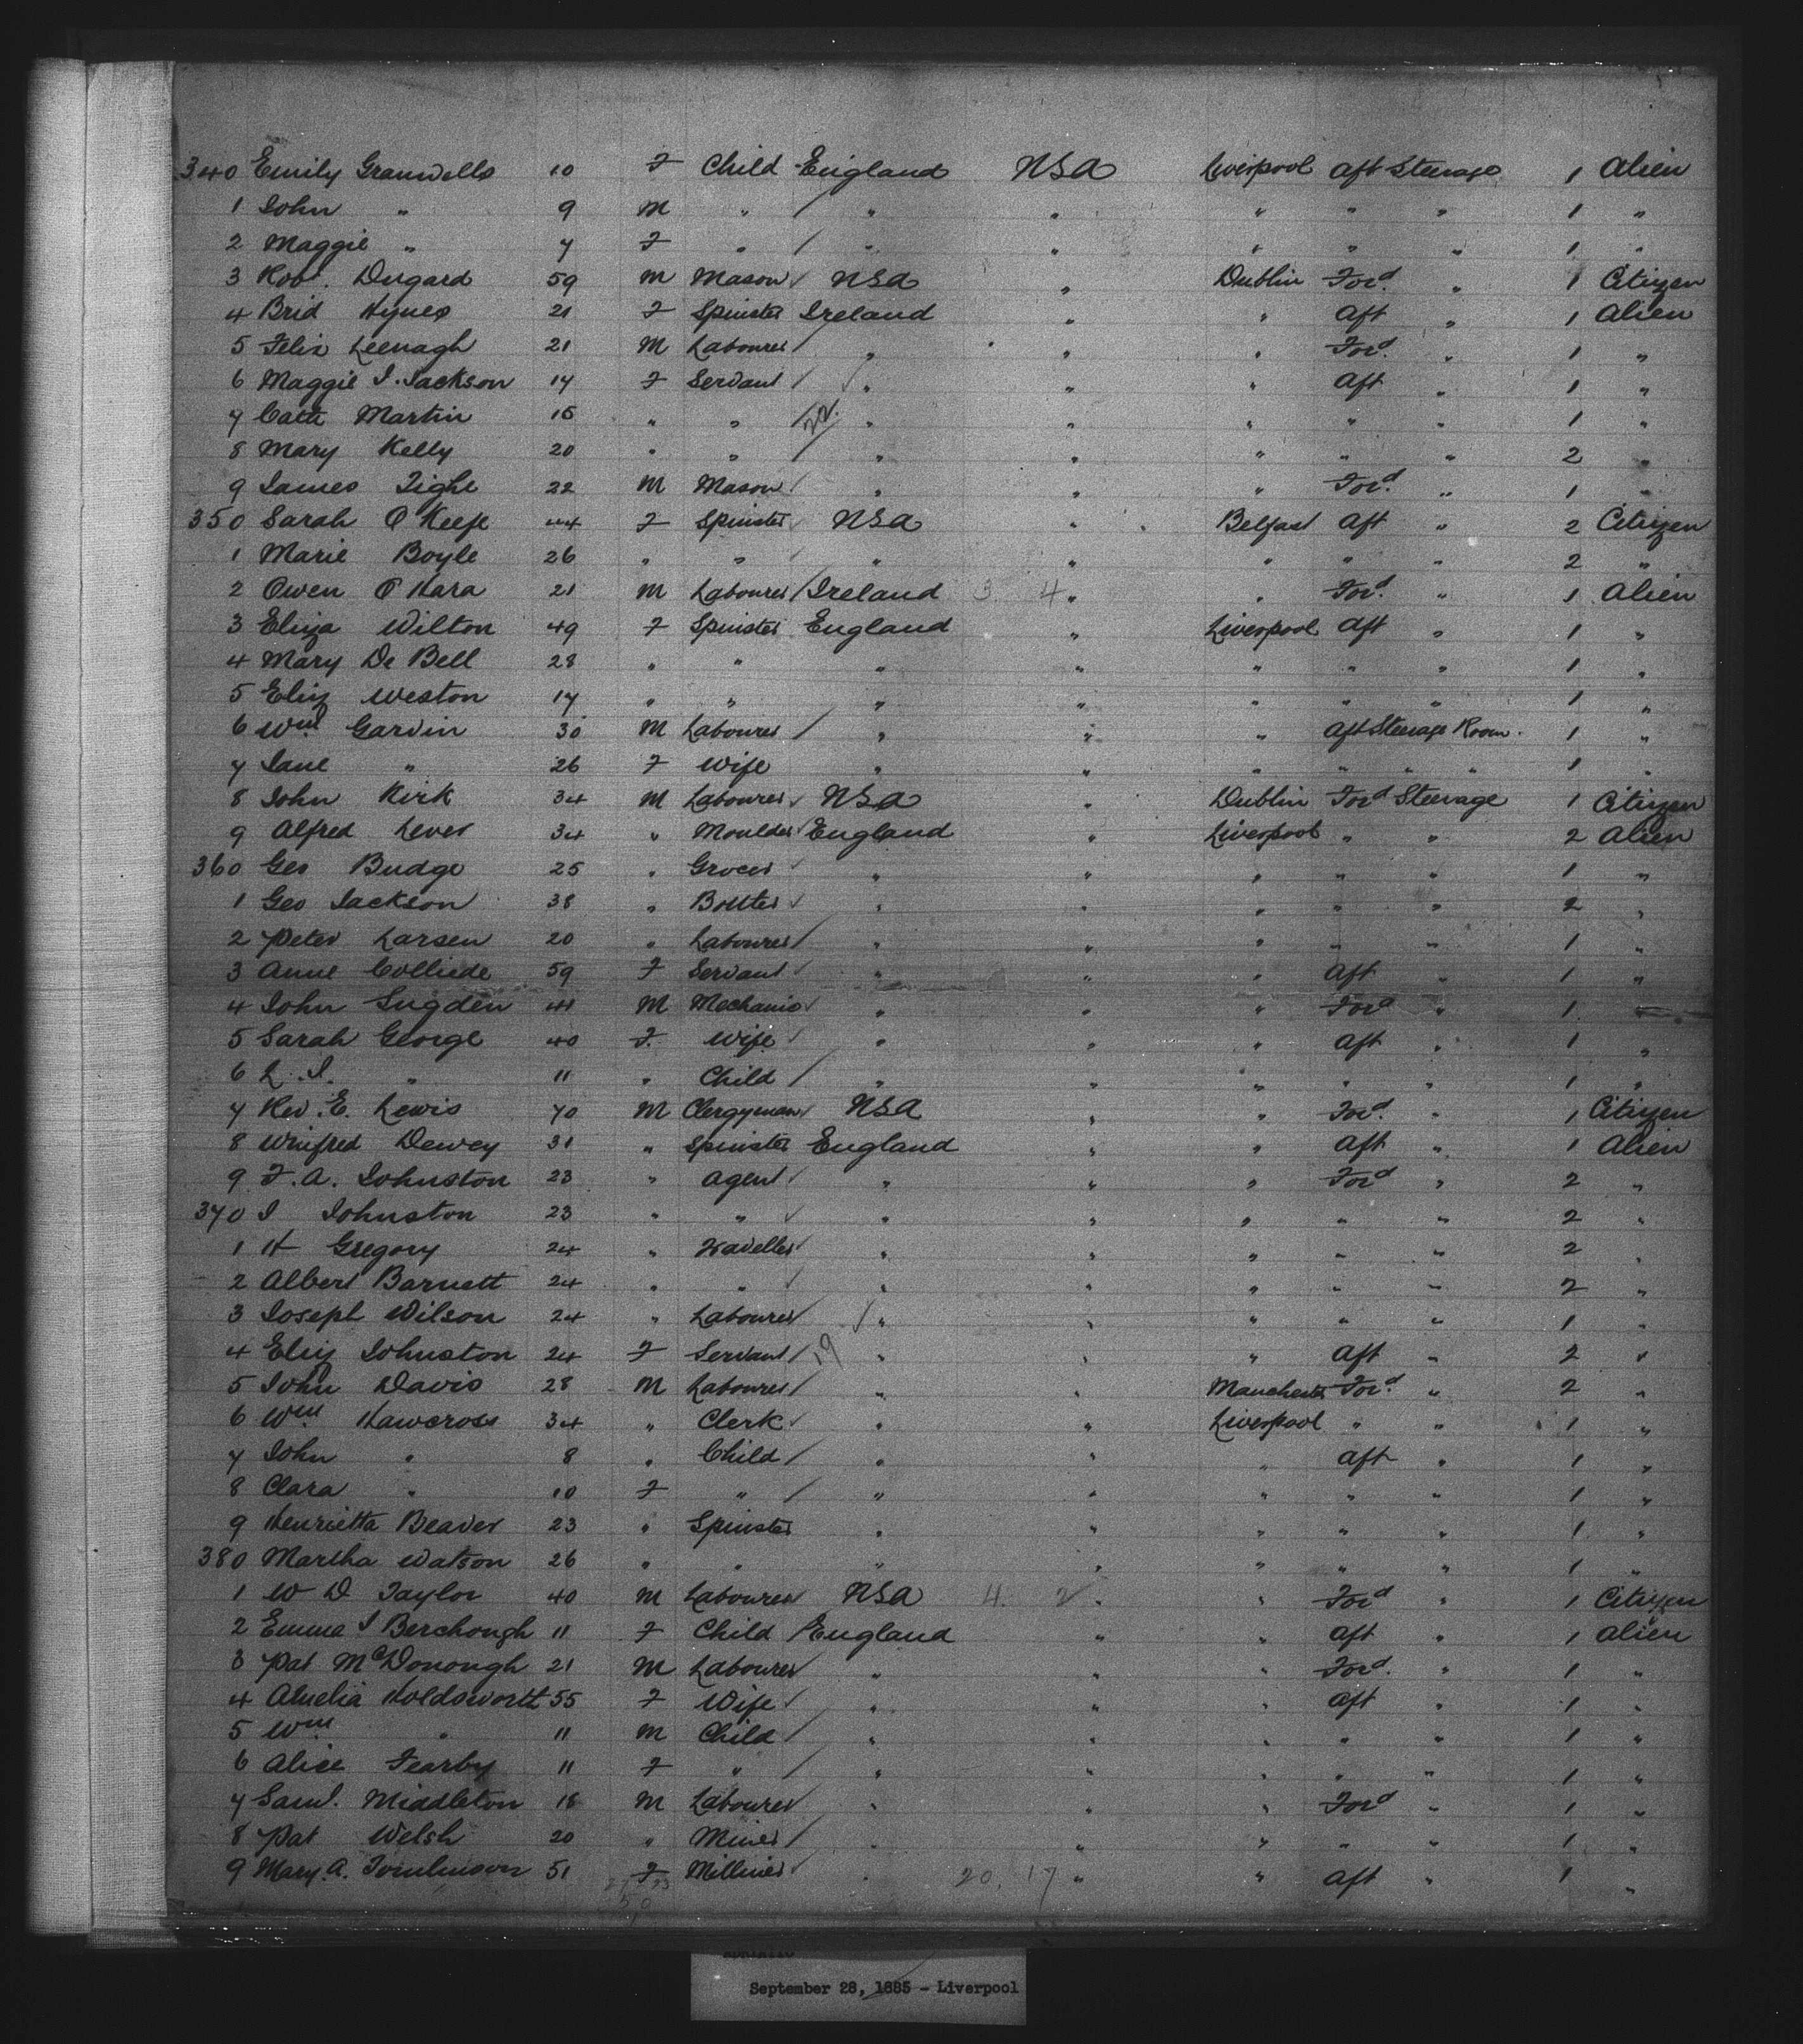 340 Emily Granwells 10 F Child England USA Liverpool Aft Steerage 1 Alien
1 John " 9 M " / " " " " " 1 "
2 Maggie " 7 F " / " " " " " 1 "
3 Robt. Dugard 59 M Mason / USA " Dublin Ford. " 1 Citizen
4 Brid Hynes 21 F Spinster Ireland " " Aft " 1 Alien
5 Felix Leenagh 21 M Labourer / " " " Ford. " 1 "
6 Maggie J. Jackson 17 F Servant / " " " Aft " 1 "
7 Cath Martin 15 " " / " " " " " 1 "
8 Mary Kelly 20 " " / " " " " " 2 "
9 James Tighe 22 M Mason / " " " Ford. " 1 "
350 Sarah O'Keefe 44 F Spinster USA " Belfast Aft " 2 Citizen
1 Marie Boyle 26 " " / " " " " " 2 "
2 Owen O'Hara 21 M Labourer / Ireland 3 4 " " Ford. " 1 Alien
3 Eliza Wilton 49 F Spinster England " Liverpool Aft " 1 "
4 Mary De Bell 28 " " " " " " " 1 "
5 Eliz Weston 17 " " " " " " " 1 "
6 Wm Garvin 30 M Labourer / " " " Aft Steerage Room. 1 "
7 Jane " 26 F Wife " " " " " " 1 "
8 John Kirk 34 M Labourer USA " Dublin Ford Steerage 1 Citizen
9 Alfred Lever 34 " Moulder England " Liverpool " " 2 Alien
360 Geo Budge 25 " Grocer " " " " " 1 "
1 Geo Jackson 38 " " " " " " 2 "
2 Peter Larsen 20 " Labourer / " " " " " 1 "
3 Anne Colliede 59 F Servant / " " " Aft " 1 "
4 John Sugden 41 M Mechanic " " " Ford " 1 "
5 Sarah George 40 F. Wife / " " " Aft " 1 "
6 L. J. " 11 " Child / " " " " " 1 "
7 Rev. E. Lewis 70 M Clergyman USA " " Ford. " 1 Citizen
8 Winifred Dewey 31 " Spinster England " " Aft " 1 Alien
9 F. A. Johnston 23 " Agent / " " " Ford " 2 "
370 J Johnston 23 " " " " " " " 2 "
1 H Gregory 24 " Traveller " " " " " 2 "
2 Albert Barnett 24 " " " " " " " 2 "
3 Joseph Wilson 24 " Labourer / " " " " " 1 "
4 Eliz Johnston 24 F Servant / 19 " " " Aft " 2 "
5 John Davis 28 M Labourer / " " Manchester Ford. " 2 "
6 Wm Hawcross 34 " Clerk " " Liverpool " " 1 "
7 John " 8 " Child / " " " Aft " 1 "
8 Clara " 10 F " / " " " " " 1 "
9 Henrietta Beaver 23 " Spinster " " " " " 1 "
380 Martha Watson 26 " " " " " " " 1 "
1 W D Taylor 40 M Labourer USA 4 2 " " Ford " 1 Citizen
2 Emma J Berchough 11 F Child / England " " Aft " 1 Alien
3 Pat McDonough 21 M Labourer " " " Ford. " 1 "
4 Amelia Holdsworth 55 F Wife / " " " Aft " 1 "
5 Wm " 11 M Child / " " " " " 1 "
6 Alice Fearby 11 F " / " " " " " 1 "
7 Saml. Middleton 18 M Labourer " " " Ford " 1 "
8 Pat Welsh 20 " Miner / " " " " " 1 "
9 Mary. A. Tomlinson 51 F Milliner " 20. 17 " " Aft " 1 "
50
September 28, 1885 - Liverpool